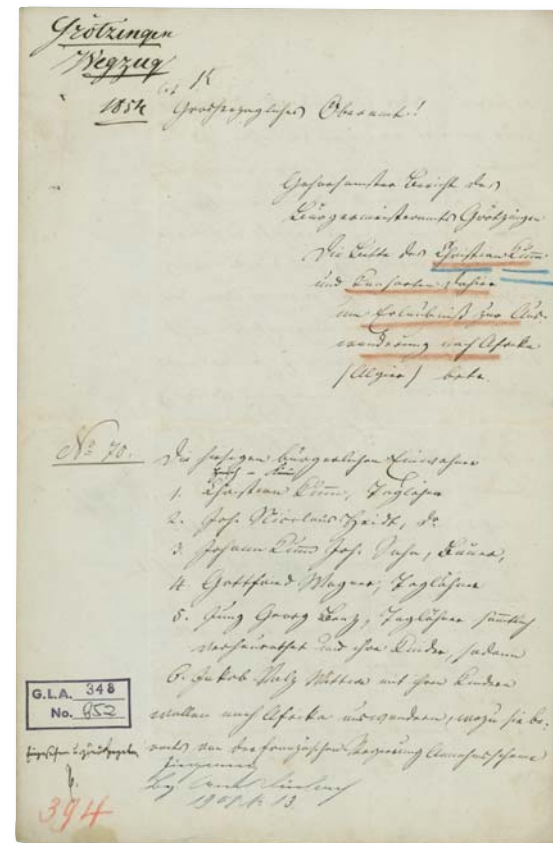 Grötzingen
Wegzug
1854
Großherzogliches Oberamt!
Gehorsamster Bericht des
Bürgermeisteramts Grötzingen
Die Bitte des Christian Kumm
und Consorten dahier
um Erlaubniß zur Aus-
wanderung nach Afrika
(Algier) betr.
No 70.
Die hiesigen bürgerlichen Einwohner
1. Christian Kumm, Taglöhner
2. Joh. Nicolaus Heidt, do
3. Johann Kumm Joh. Sohn, Bauer,
4. Gottfried Wagner, Taglöhner
5. Jung Georg Benz, Taglöhner sämtlich
verheurathet und ihre Kinder, sodann
6. Jakob Walz Wittwe mit ihren Kindern
wollen nach Afrika auswandern, wozu sie be-
reits von der französischen Regierung Annahmscheine
G.L.A. 348
No. 852
394